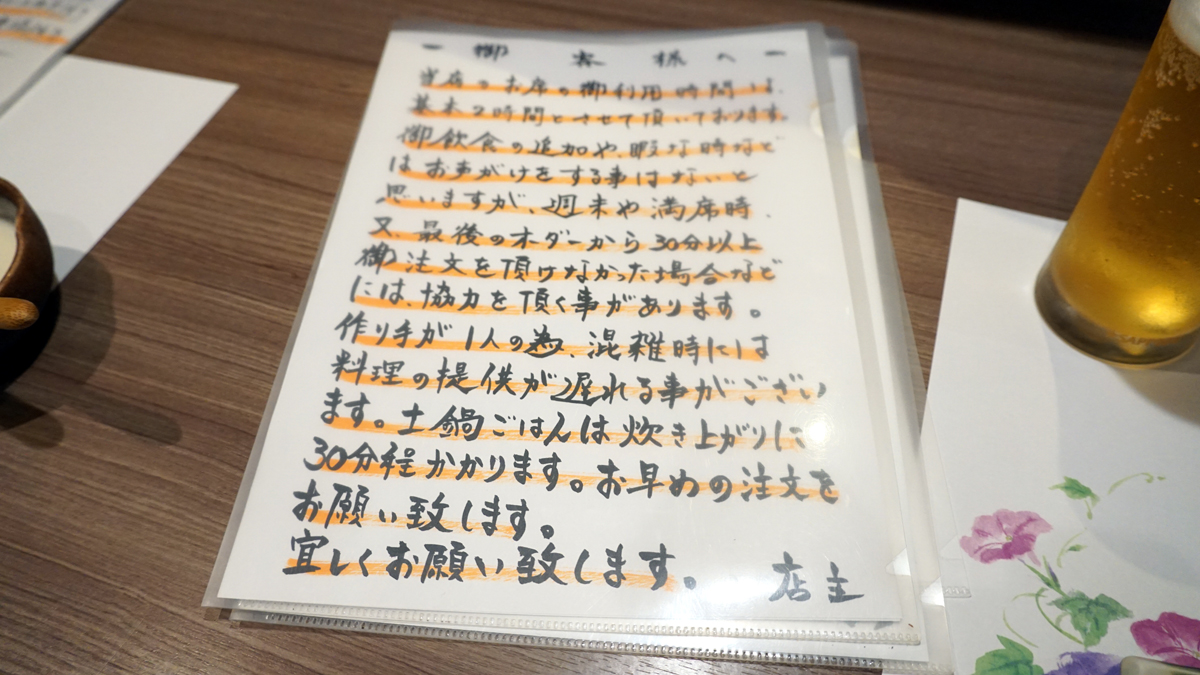 ー 御客様へ ー
当店のお席の御利用時間は、
基本2時間とさせて頂いております。
御飲食の追加や、暇な時など
はお声がけをする事はないと
思いますが、週末や満席時、
又、最後のオーダーから30分以上
御注文を頂けなかった場合など
には、協力を頂く事があります。
作り手が1人の為、混雑時には
料理の提供が遅れる事がござい
ます。土鍋ごはんは炊き上がりに
30分程かかります。お早めの注文を
お願い致します。
宜しくお願い致します。 店主